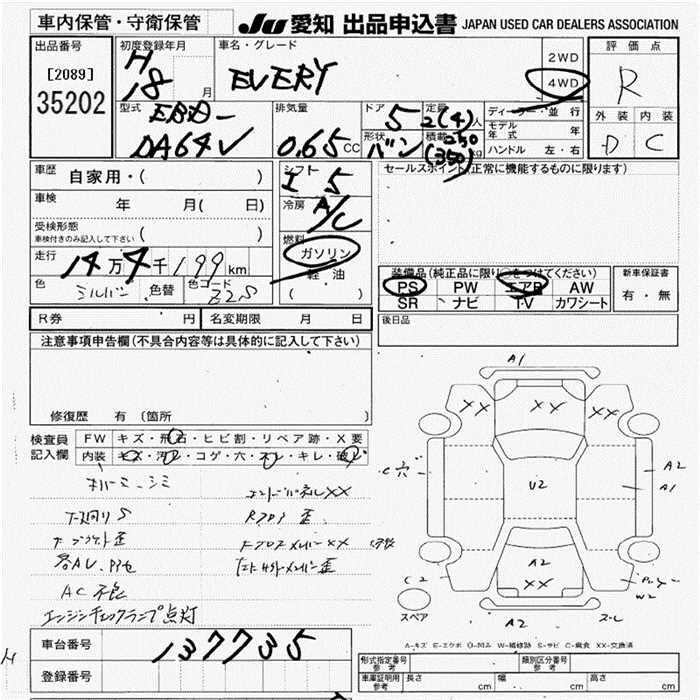 車内保管・守衛保管
JU 愛知 出品申込書 JAPAN USED CAR DEALERS ASSOCIATION
出品番号
[2089]
35202
初度登録年月
H
18 月
車名・グレード
EVERY
2WD
4WD
評価点
R
外装 内装
D C
型式
EBD-
DA64V
排気量
0.65 CC
ドア
5
形状
バン
定員
2(4)人
積載
250
(350) kg
ディーラー・並行
モデル年式 年
ハンドル 左・右
車歴 自家用・( )
車検 年 月( 日)
受検形態
車検付きのみ記入して下さい ( )
走行 14万4千199km
色 シルバー 色替 色コード Z2S
シフト
I 5
冷房
A/C
燃料
ガソリン
軽油
( )
セールスポイント(正常に機能するものに限ります)
装備品(純正品に限り○をつけてください)
PS PW エアB AW
SR ナビ TV カワシート
新車保証書
有・無
R券 円 名変期限 月 日
後日品
注意事項申告欄(不具合内容等は具体的に記入して下さい)
修復歴 有(箇所 )
検査員
記入欄
FW キズ・飛石・ヒビ割・リペア跡・X要
内装 キズ・汚レ・コゲ・穴・スレ・キレ・破レ
下廻りS
Rフロア歪
AC不良
エンジンチェックランプ点灯
A1
XX
XX
XX
C穴
A2
A1
U2
A2
XX
C2
W2
A2
スペア
A-キズ E-エクボ U-凹み W-補修跡 S-サビ C-腐食 XX-交換済
車台番号 137735
登録番号
H
形式指定番号 参考
類別区分番号 参考
車庫証明用 参考 長さ cm 幅 cm 高さ cm